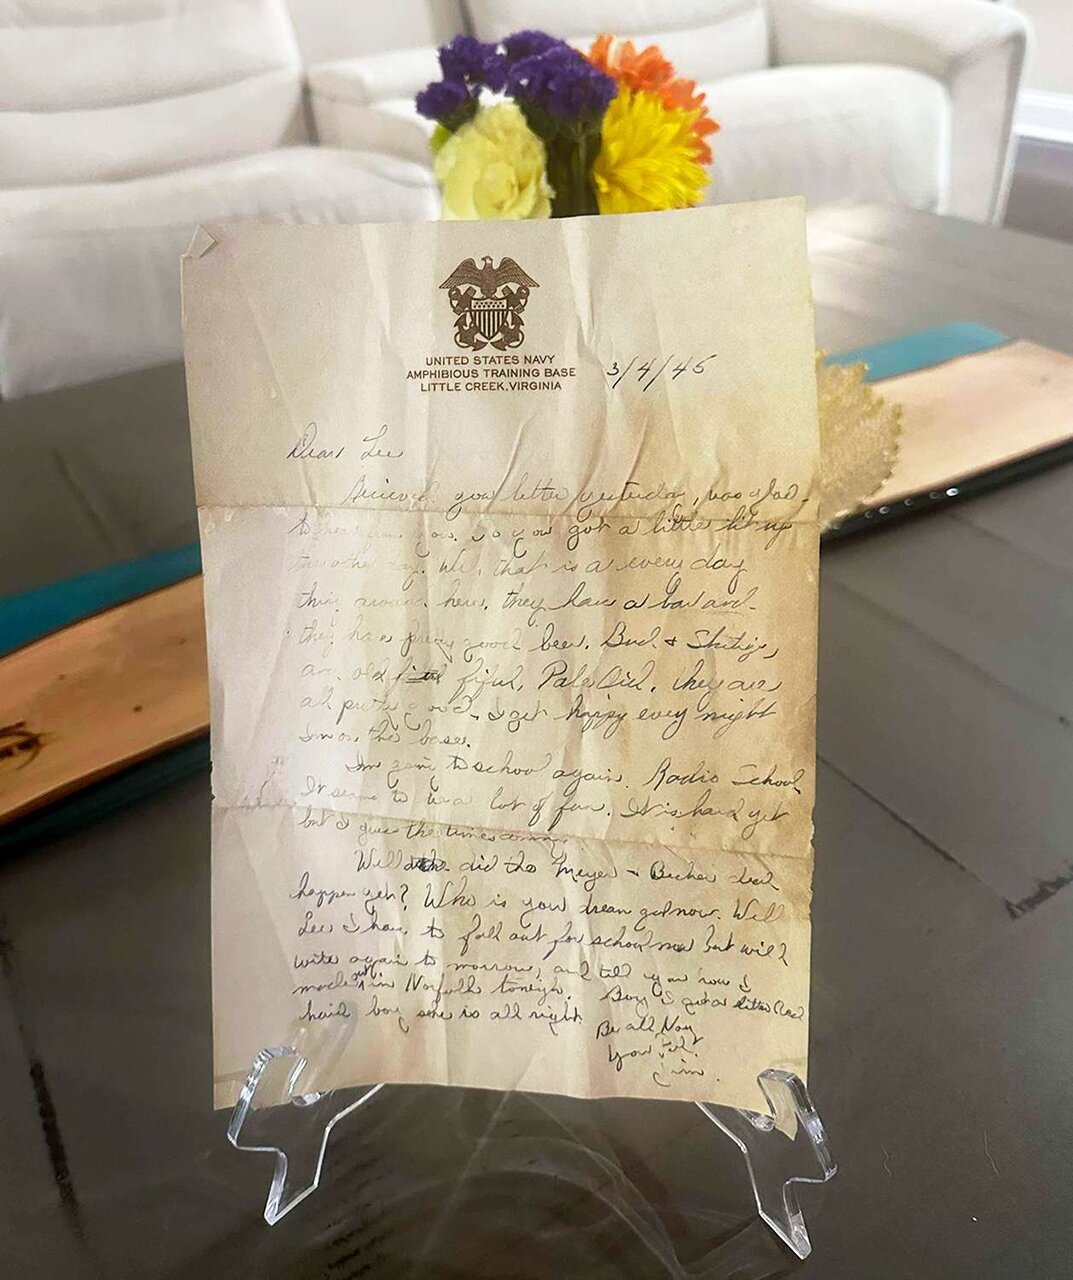 UNITED STATES NAVY
AMPHIBIOUS TRAINING BASE
LITTLE CREEK, VIRGINIA
3/4/45
Dear Lee
Recieved your letter yesterday, was glad
to hear from you. So you got a little lit up
the other day. Well, that is a every day
thing around here. they have a bar and
they have pretty good beer. Bud &
old Pale they are
all pretty good. I get happy every night
Im on the base.
Im going to school again. Radio School
It seems to be a lot of fun. It is hard yet
but I guess the times coming.
Well did the Meyer & Becker deal
happen yet? Who is your dream girl now. Well
Lee I have to fall out for school now but will
write again to morrow, and tell you how I
made out in Norfolk tonight. Boy I got a little Red
haid boy she is all right.
Be all Now
Your Pal.
Jim.